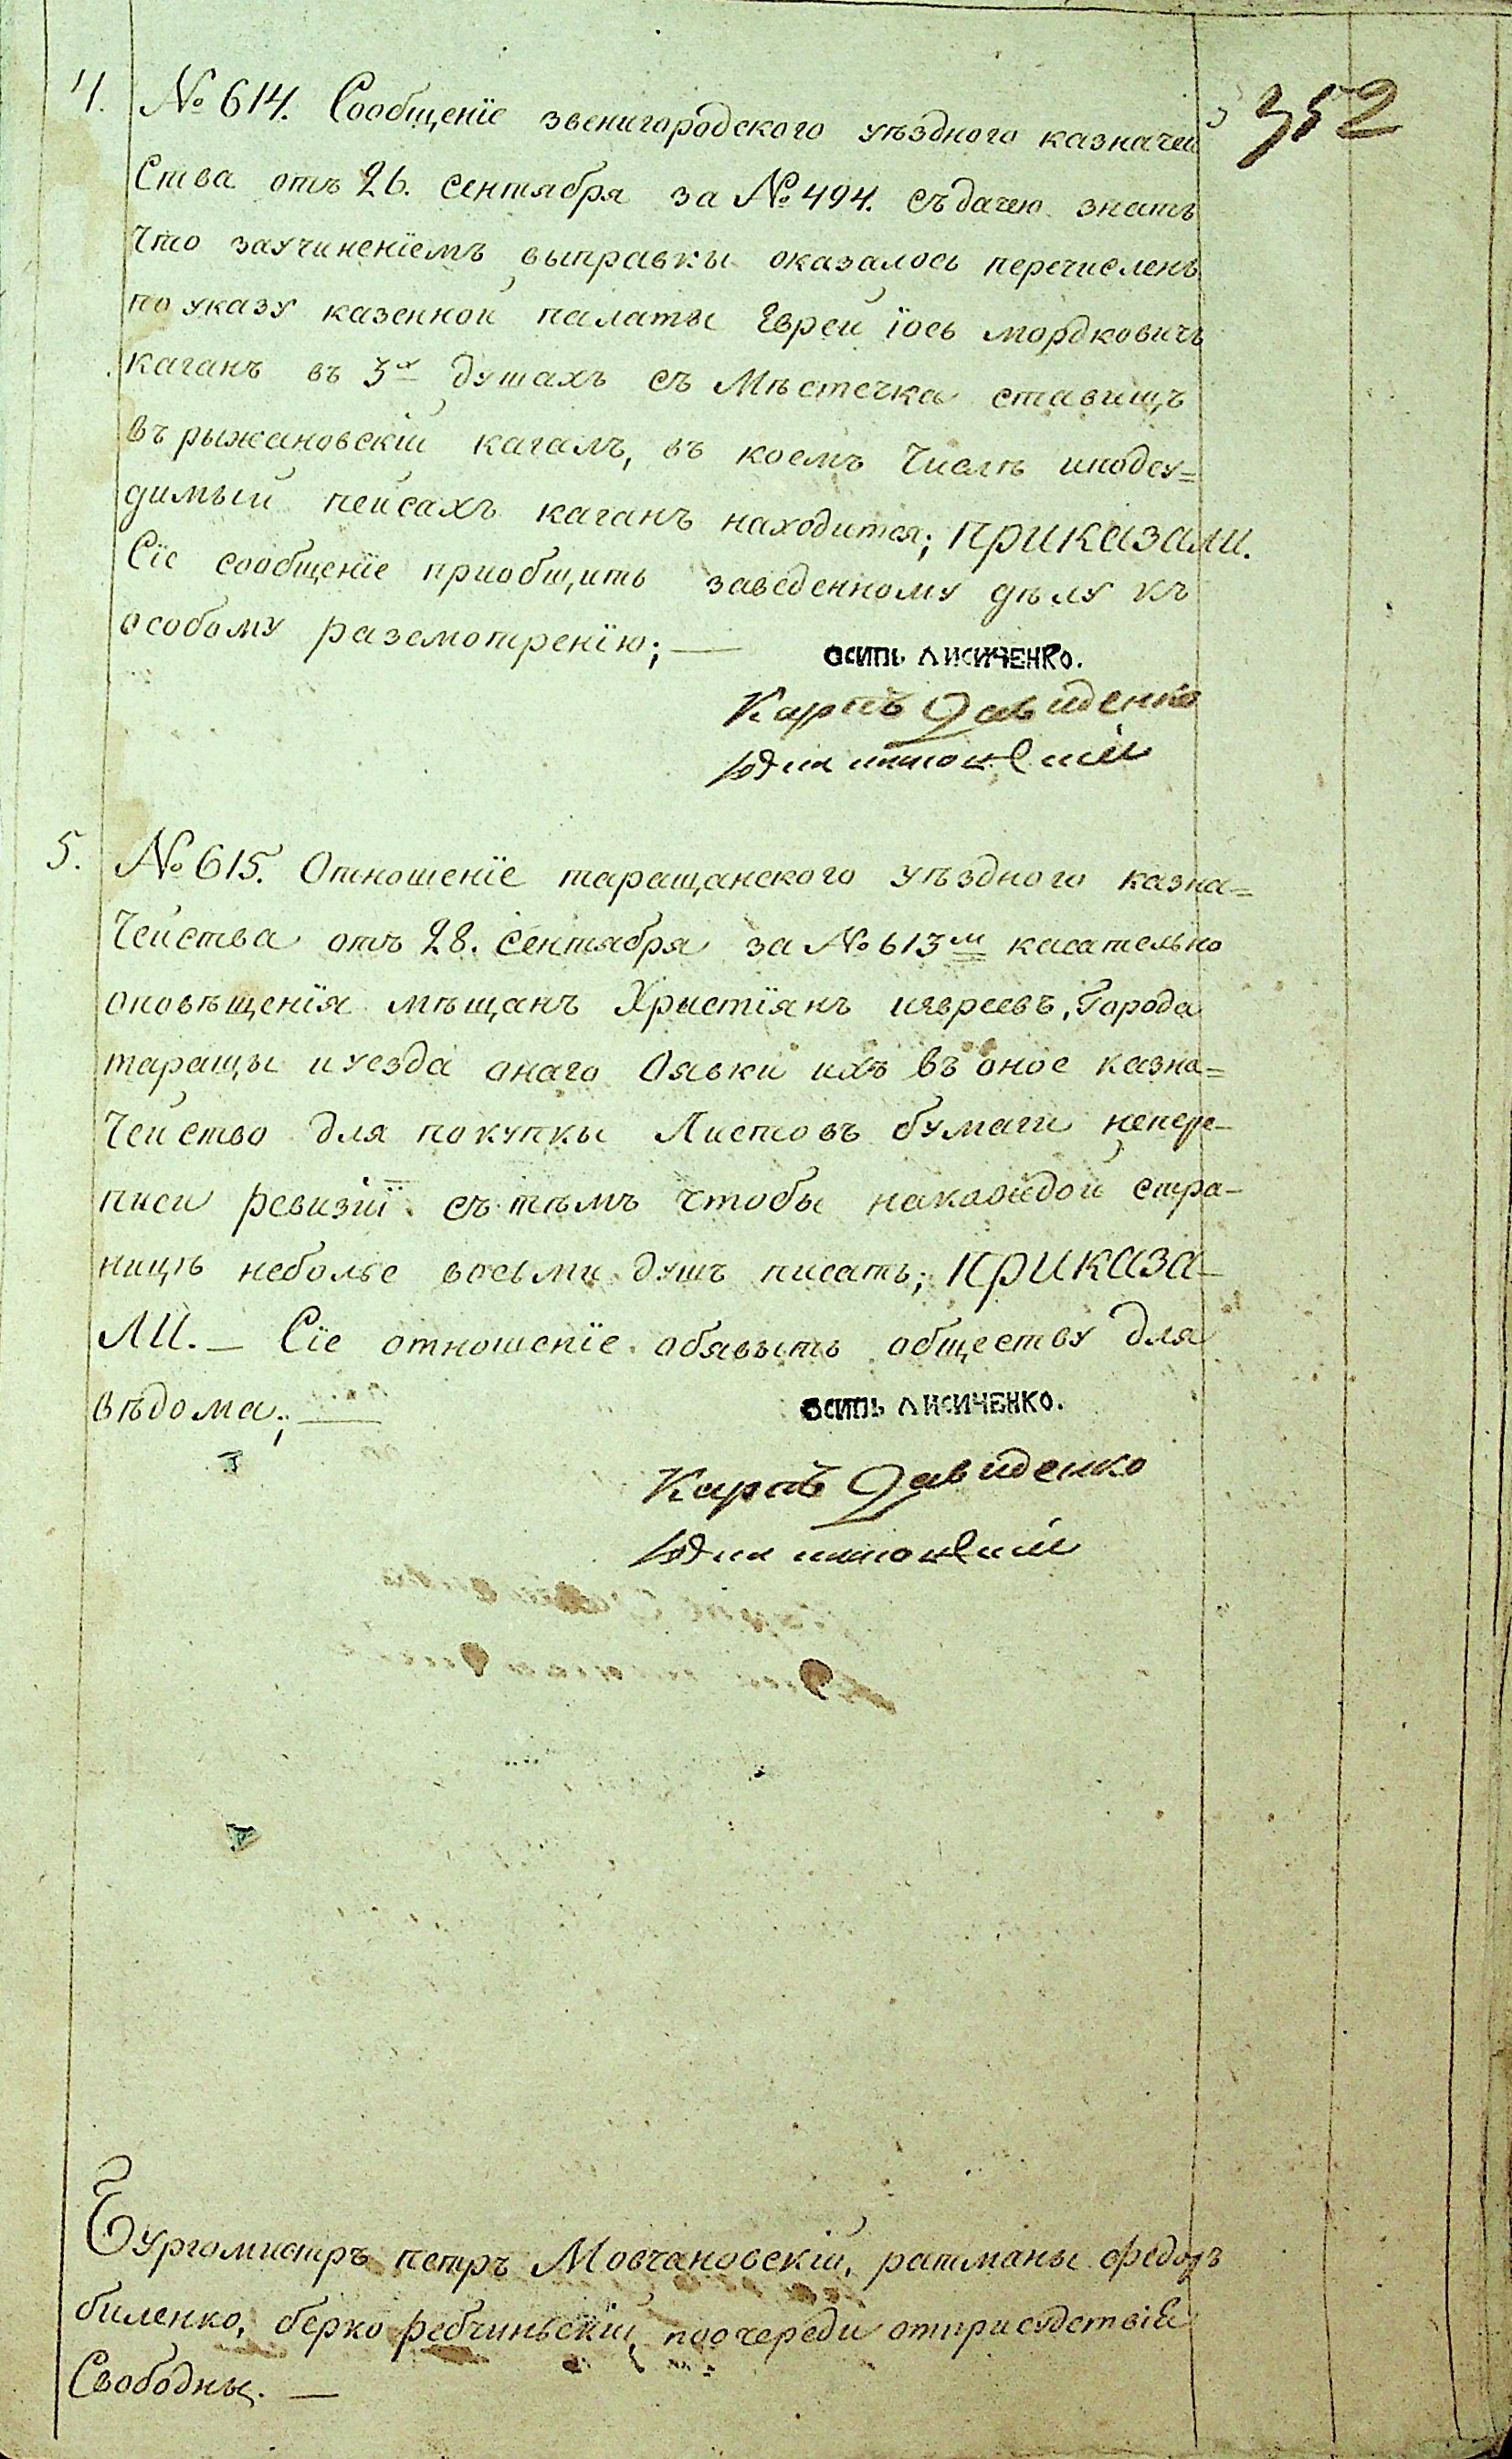 352
4. № 614. Сообщенїе звенигородского уѣздного казначей
Ства отъ 26. сентября за № 494. съ дачею знать
Что заучиненїемъ выправки оказалось перечисленъ
по указу казенной палаты Еврей їось мордковичъ
каганъ въ 3х душахъ съ Мѣстечка ставищъ
въ рыжановскій кагалъ, въ коемъ Числѣ иподсу=
димый пейсахъ каганъ находится; приказали.
Сїе сообщенїе приобщить заведенному дѣлу къ
особому разсмотренїю; —
осипъ лисиченко.
Карпъ Давиденко
5. № 615. Отношенїе таращанского уѣздного казна=
Чейства отъ 28. сентября за № 613м касательно
оповѣщенїя мѣщанъ Христїянъ иевреевъ, Города
таращы и уезда онаго Оявки ихъ въ оное казна=
Чейство для покупкы Листовъ бумаги кепере-
писи ревизїи съ тѣмъ чтобы накаждой стра-
ницѣ неболѣе восьми душъ писать; приказа-
ли. — Сїе отношенїе обявыть обществу для
вѣдома; —
осипъ лисиченко.
Карпъ Давиденко
Бургомистръ петръ Мовчановскій, ратманы федоръ
биленко, берко ребчиньскій, поочереди отприсудствія
Свободны. —